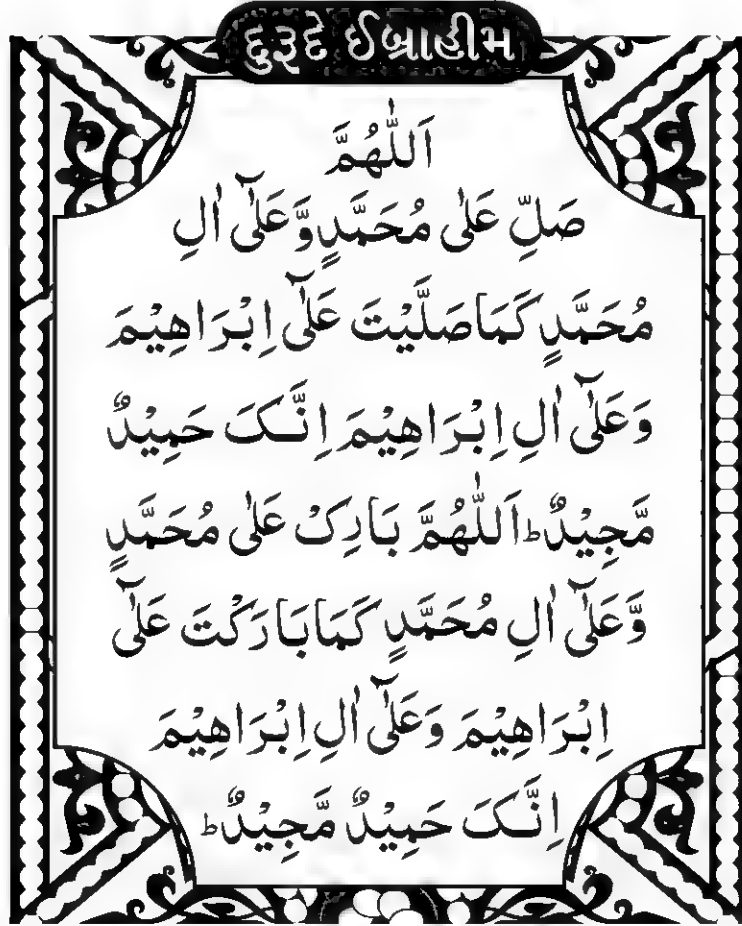 દુરૂદે ઈબ્રાહીમ
اَللّٰهُمَّ
صَلِّ عَلٰى مُحَمَّدٍ وَّعَلٰٓى اٰلِ
مُحَمَّدٍ كَمَا صَلَّيْتَ عَلٰٓى اِبْرَاهِيْمَ
وَعَلٰٓى اٰلِ اِبْرَاهِيْمَ اِنَّكَ حَمِيْدٌ
مَّجِيْدٌ ؕ اَللّٰهُمَّ بَارِكْ عَلٰى مُحَمَّدٍ
وَّعَلٰٓى اٰلِ مُحَمَّدٍ كَمَا بَارَكْتَ عَلٰٓى
اِبْرَاهِيْمَ وَعَلٰٓى اٰلِ اِبْرَاهِيْمَ
اِنَّكَ حَمِيْدٌ مَّجِيْدٌ ؕ